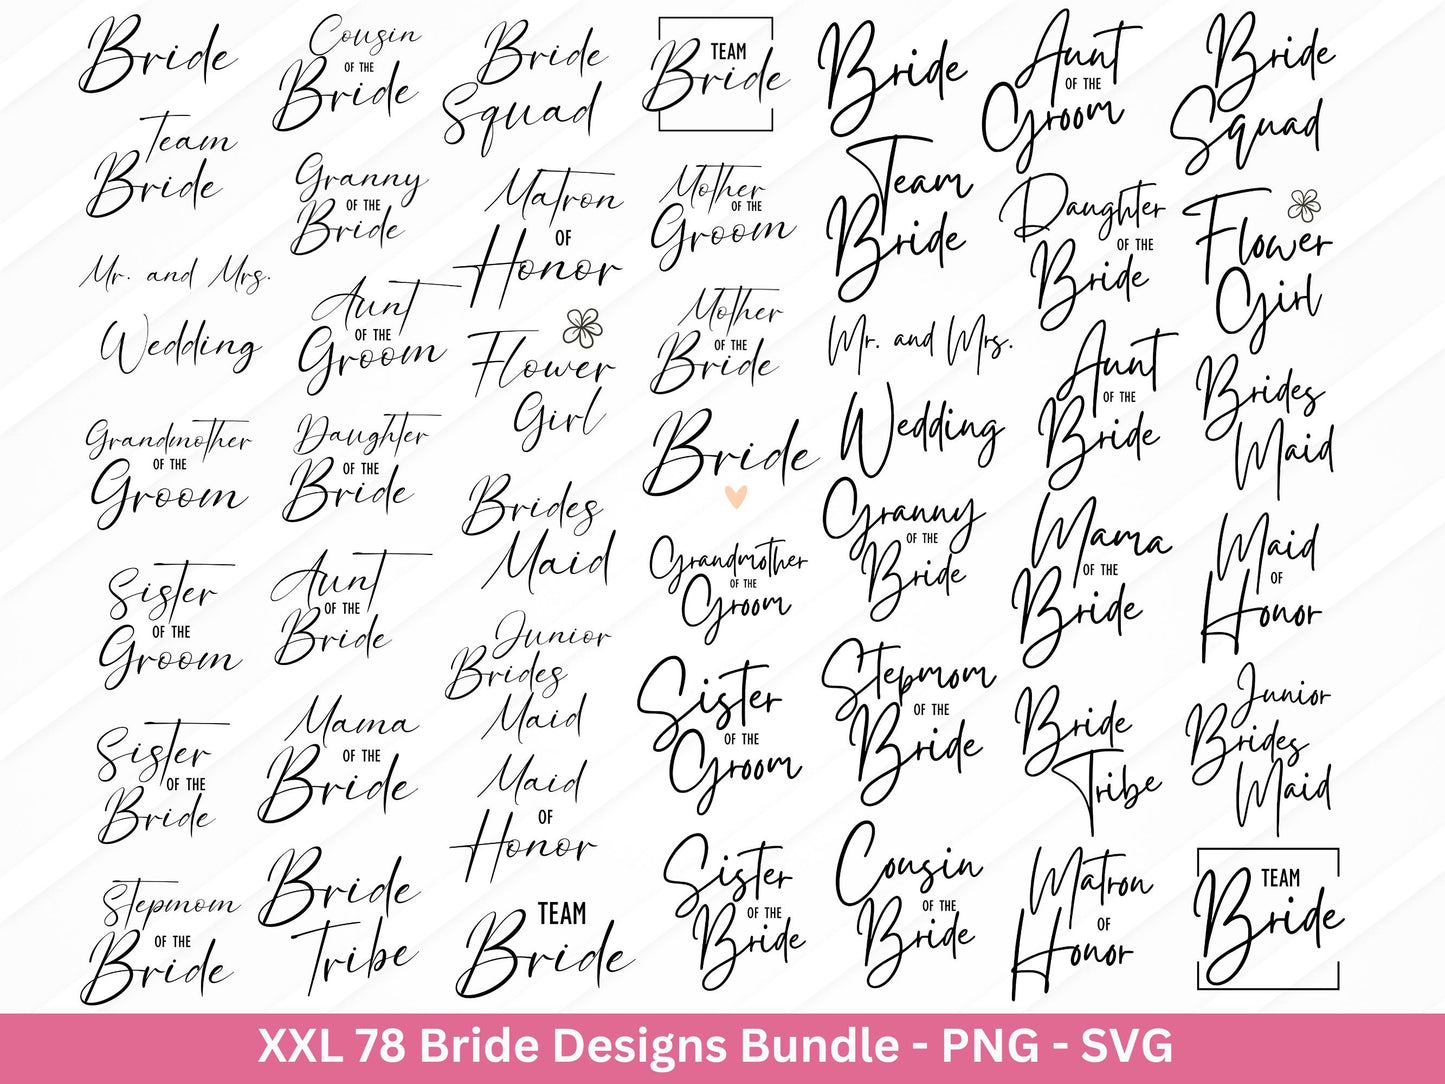 Bride
Team
Bride
Mr. and Mrs.
Wedding
Grandmother
OF THE
Groom
Sister
OF THE
Groom
Sister
OF THE
Bride
Stepmom
OF THE
Bride
Cousin
OF THE
Bride
Granny
OF THE
Bride
Aunt
OF THE
Groom
Daughter
OF THE
Bride
Aunt
OF THE
Bride
Mama
OF THE
Bride
Bride
Tribe
Bride
Squad
Matron
OF
Honor
Flower
Girl
Brides
Maid
Junior
Brides
Maid
Maid
OF
Honor
TEAM
Bride
TEAM
Bride
Mother
OF THE
Groom
Mother
OF THE
Bride
Bride
Grandmother
OF THE
Groom
Sister
OF THE
Groom
Sister
OF THE
Bride
Bride
Team
Bride
Mr. and Mrs.
Wedding
Granny
OF THE
Bride
Stepmom
OF THE
Bride
Cousin
OF THE
Bride
Aunt
OF THE
Groom
Daughter
OF THE
Bride
Aunt
OF THE
Bride
Mama
OF THE
Bride
Bride
Tribe
Matron
OF
Honor
Bride
Squad
Flower
Girl
Brides
Maid
Maid
OF
Honor
Junior
Brides
Maid
TEAM
Bride
XXL 78 Bride Designs Bundle - PNG - SVG